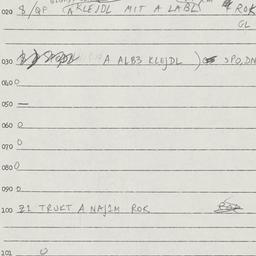 020 $/QF A KLEJDL MIT A LABL ROK
GL
030 A ALB3 KLEJDL ) SPO,DN
040 0
050 —
060 0
070 0
080 0
090 0
100 Z1 TRUKT A NAJ1M ROK
101 0